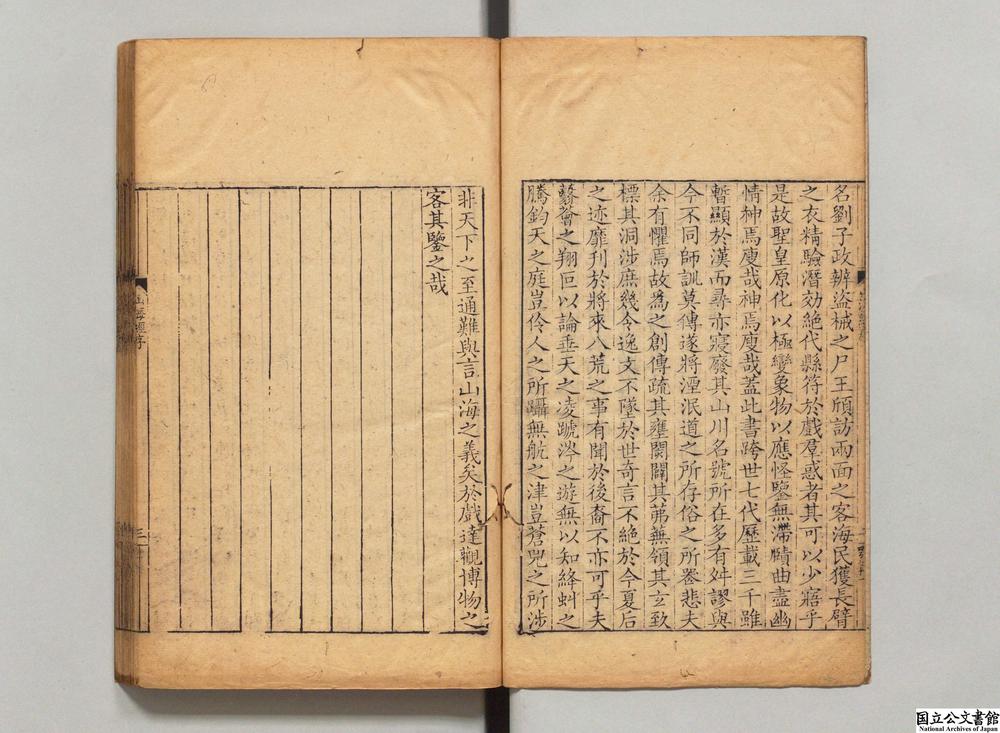 名劉子政辨盜械之尸王頎訪兩面之客海民獲長臂
之衣精驗潛効絶代縣符於戲羣惑者其可以少寤乎
是故聖皇原化以極變象物以應怪鑒無滯賾曲盡幽
情神焉廋哉神焉廋哉葢此書跨世七代歷載三千雖
暫顯於漢而尋亦寢廢其山川名號所在多有舛謬與
今不同師訓莫傳遂將湮泯道之所存俗之所䘮悲夫
余有懼焉故爲之創傳疏其壅閡闢其茀蕪領其玄致
標其洞涉庶幾令逸文不墜於世奇言不絶於今夏后
之迹靡刋於將來八荒之事有聞於後裔不亦可乎夫
蘙薈之翔叵以論垂天之凌蹏涔之遊無以知絳虯之
騰鈞天之庭豈伶人之所躡無航之津豈蒼兕之所涉
非天下之至通難與言山海之義矣於戲達觀博物之
客其鑒之哉
山海經序
三
国立公文書館
National Archives of Japan